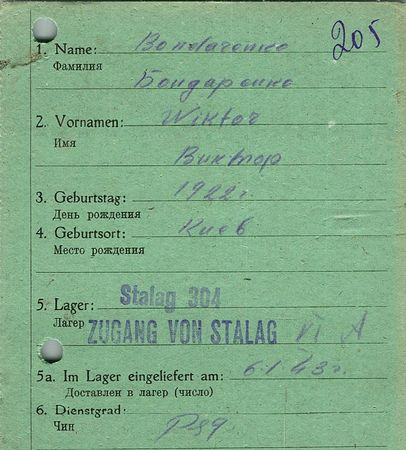 205
1. Name: Bondarenko
Фамилия
Бондаренко
2. Vornamen: Wiktor
Имя
Виктор
3. Geburtstag: 1922 г.
День рождения
4. Geburtsort: Киев
Место рождения
5. Lager: Stalag 304
Лагер
ZUGANG VON STALAG VI A
5a. Im Lager eingeliefert am: 6.1.43 г.
Доставлен в лагер (число)
6. Dienstgrad:
Чин